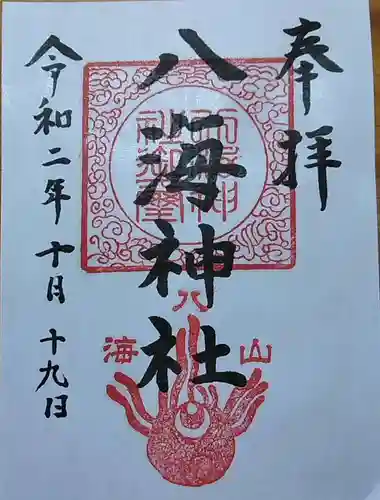 奉拝
八海神社
令和二年十月十九日
八
海
山